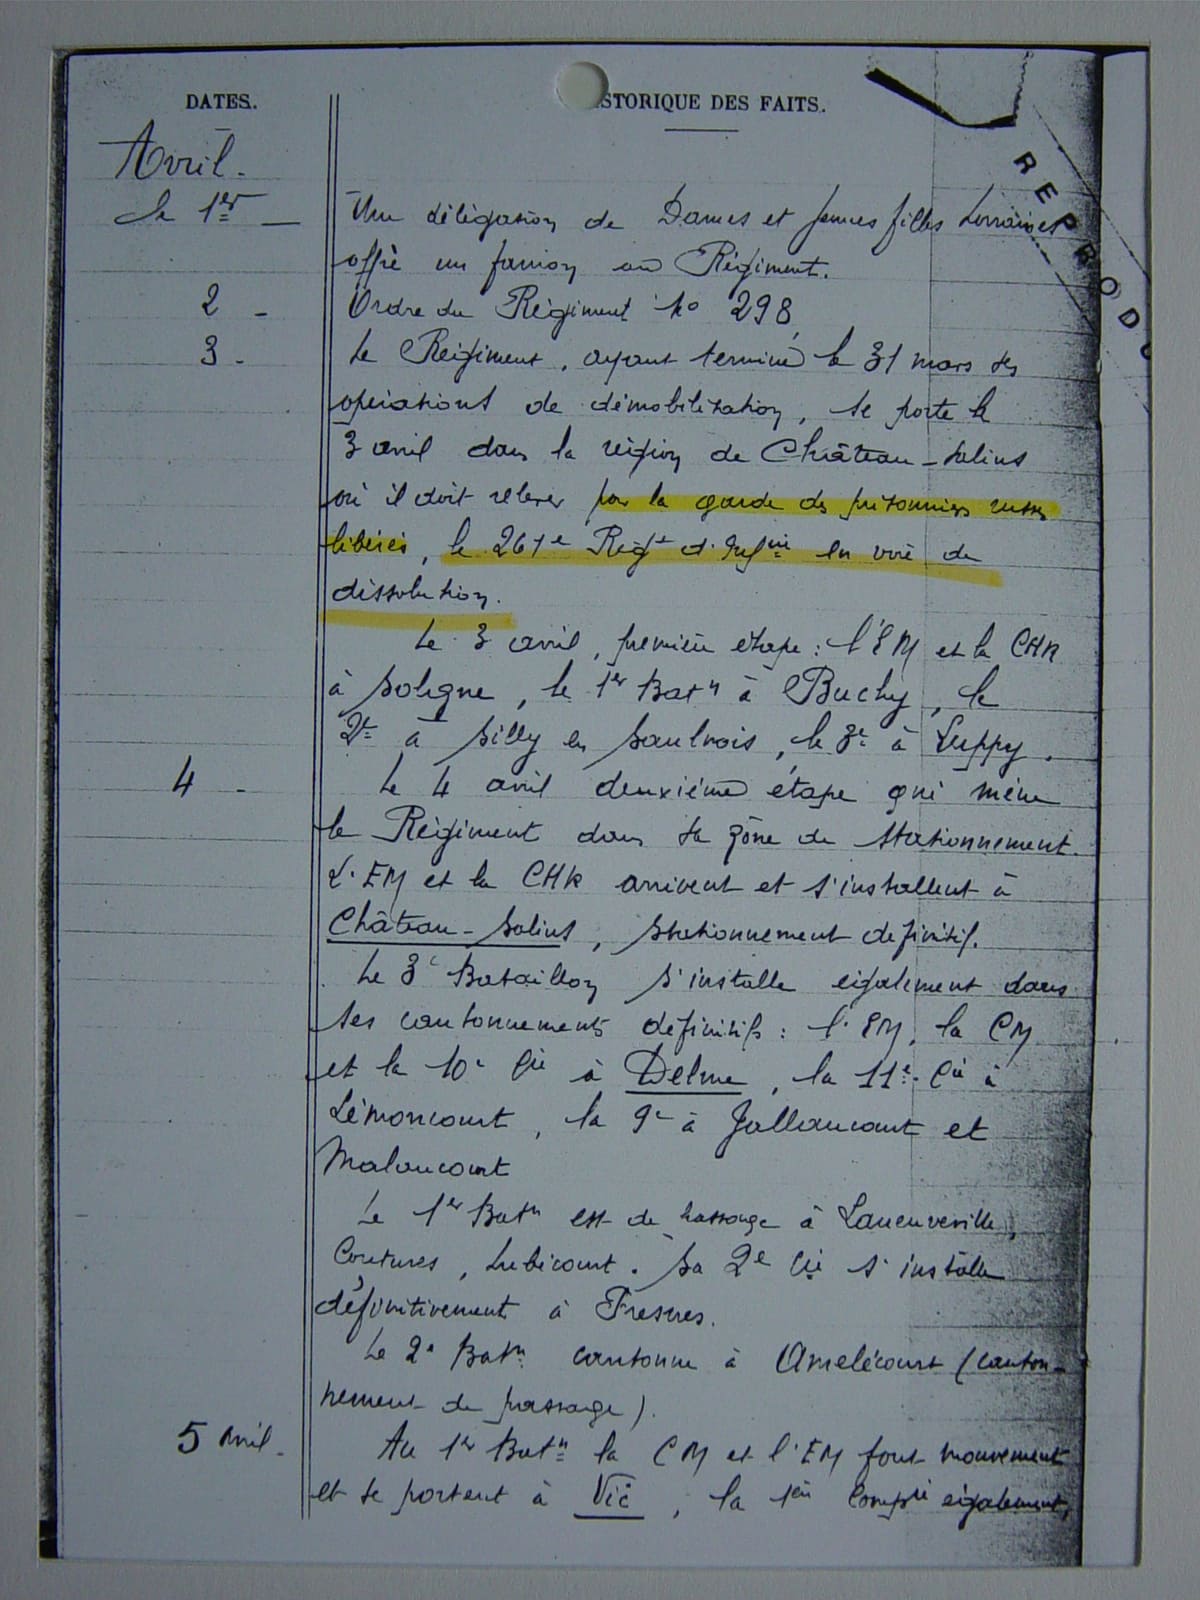 DATES.
STORIQUE DES FAITS.
REPRODU
Avril.
le 1er — Une délégation de Dames et jeunes filles Lorraines
offre un fanion au Régiment.
2 - Ordre du Régiment No 298
3 - Le Régiment, ayant terminé le 31 mars ses
opérations de démobilisation, se porte le
3 avril dans la région de Château-Salins
où il doit relever pour la garde des prisonniers russes
libérés, le 261e Régt d'Infie en voie de
dissolution.
Le 3 avril, première étape : l'EM et la CHR
à Solgne, le 1er Batn à Buchy, le
2e à Silly en Saulnois, le 3e à Luppy.
4 - Le 4 avril deuxième étape qui mène
le Régiment dans sa zône de stationnement.
L'EM et la CHR arrivent et s'installent à
Château-Salins, stationnement définitif.
Le 3e Bataillon s'installe également dans
ses cantonnements définitifs : l'EM, la CM
et la 10e Cie à Delme, la 11e Cie à
Lémoncourt, la 9e à Jallaucourt et
Malaucourt
Le 1er Batn est de passage à Laneuveville,
Coutures, Lubécourt. Sa 2e Cie s'installe
définitivement à Fresnes.
Le 2e Batn cantonne à Amelécourt (canton-
nement de passage).
5 avril - Au 1er Batn la CM et l'EM font mouvement
et se portent à Vic, la 1ère Compie également,